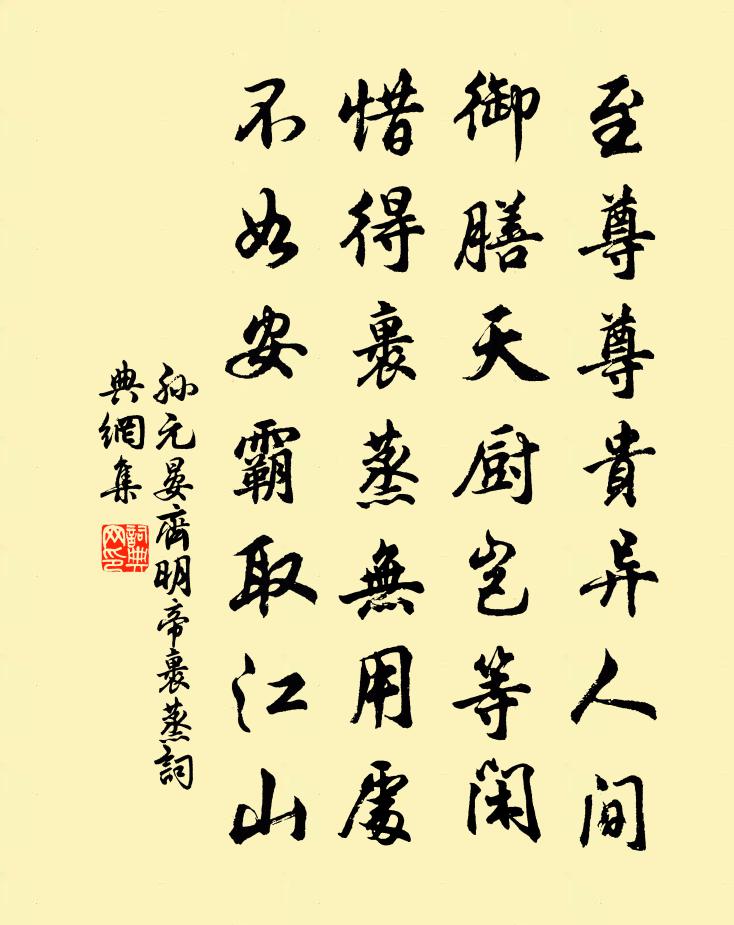 至尊尊貴异人间
御膳天厨岂等闲
惜得裹蒸無用處
不如安霸取江山
孙元晏齊明帝裹蒸詞
典網集
詞典网印